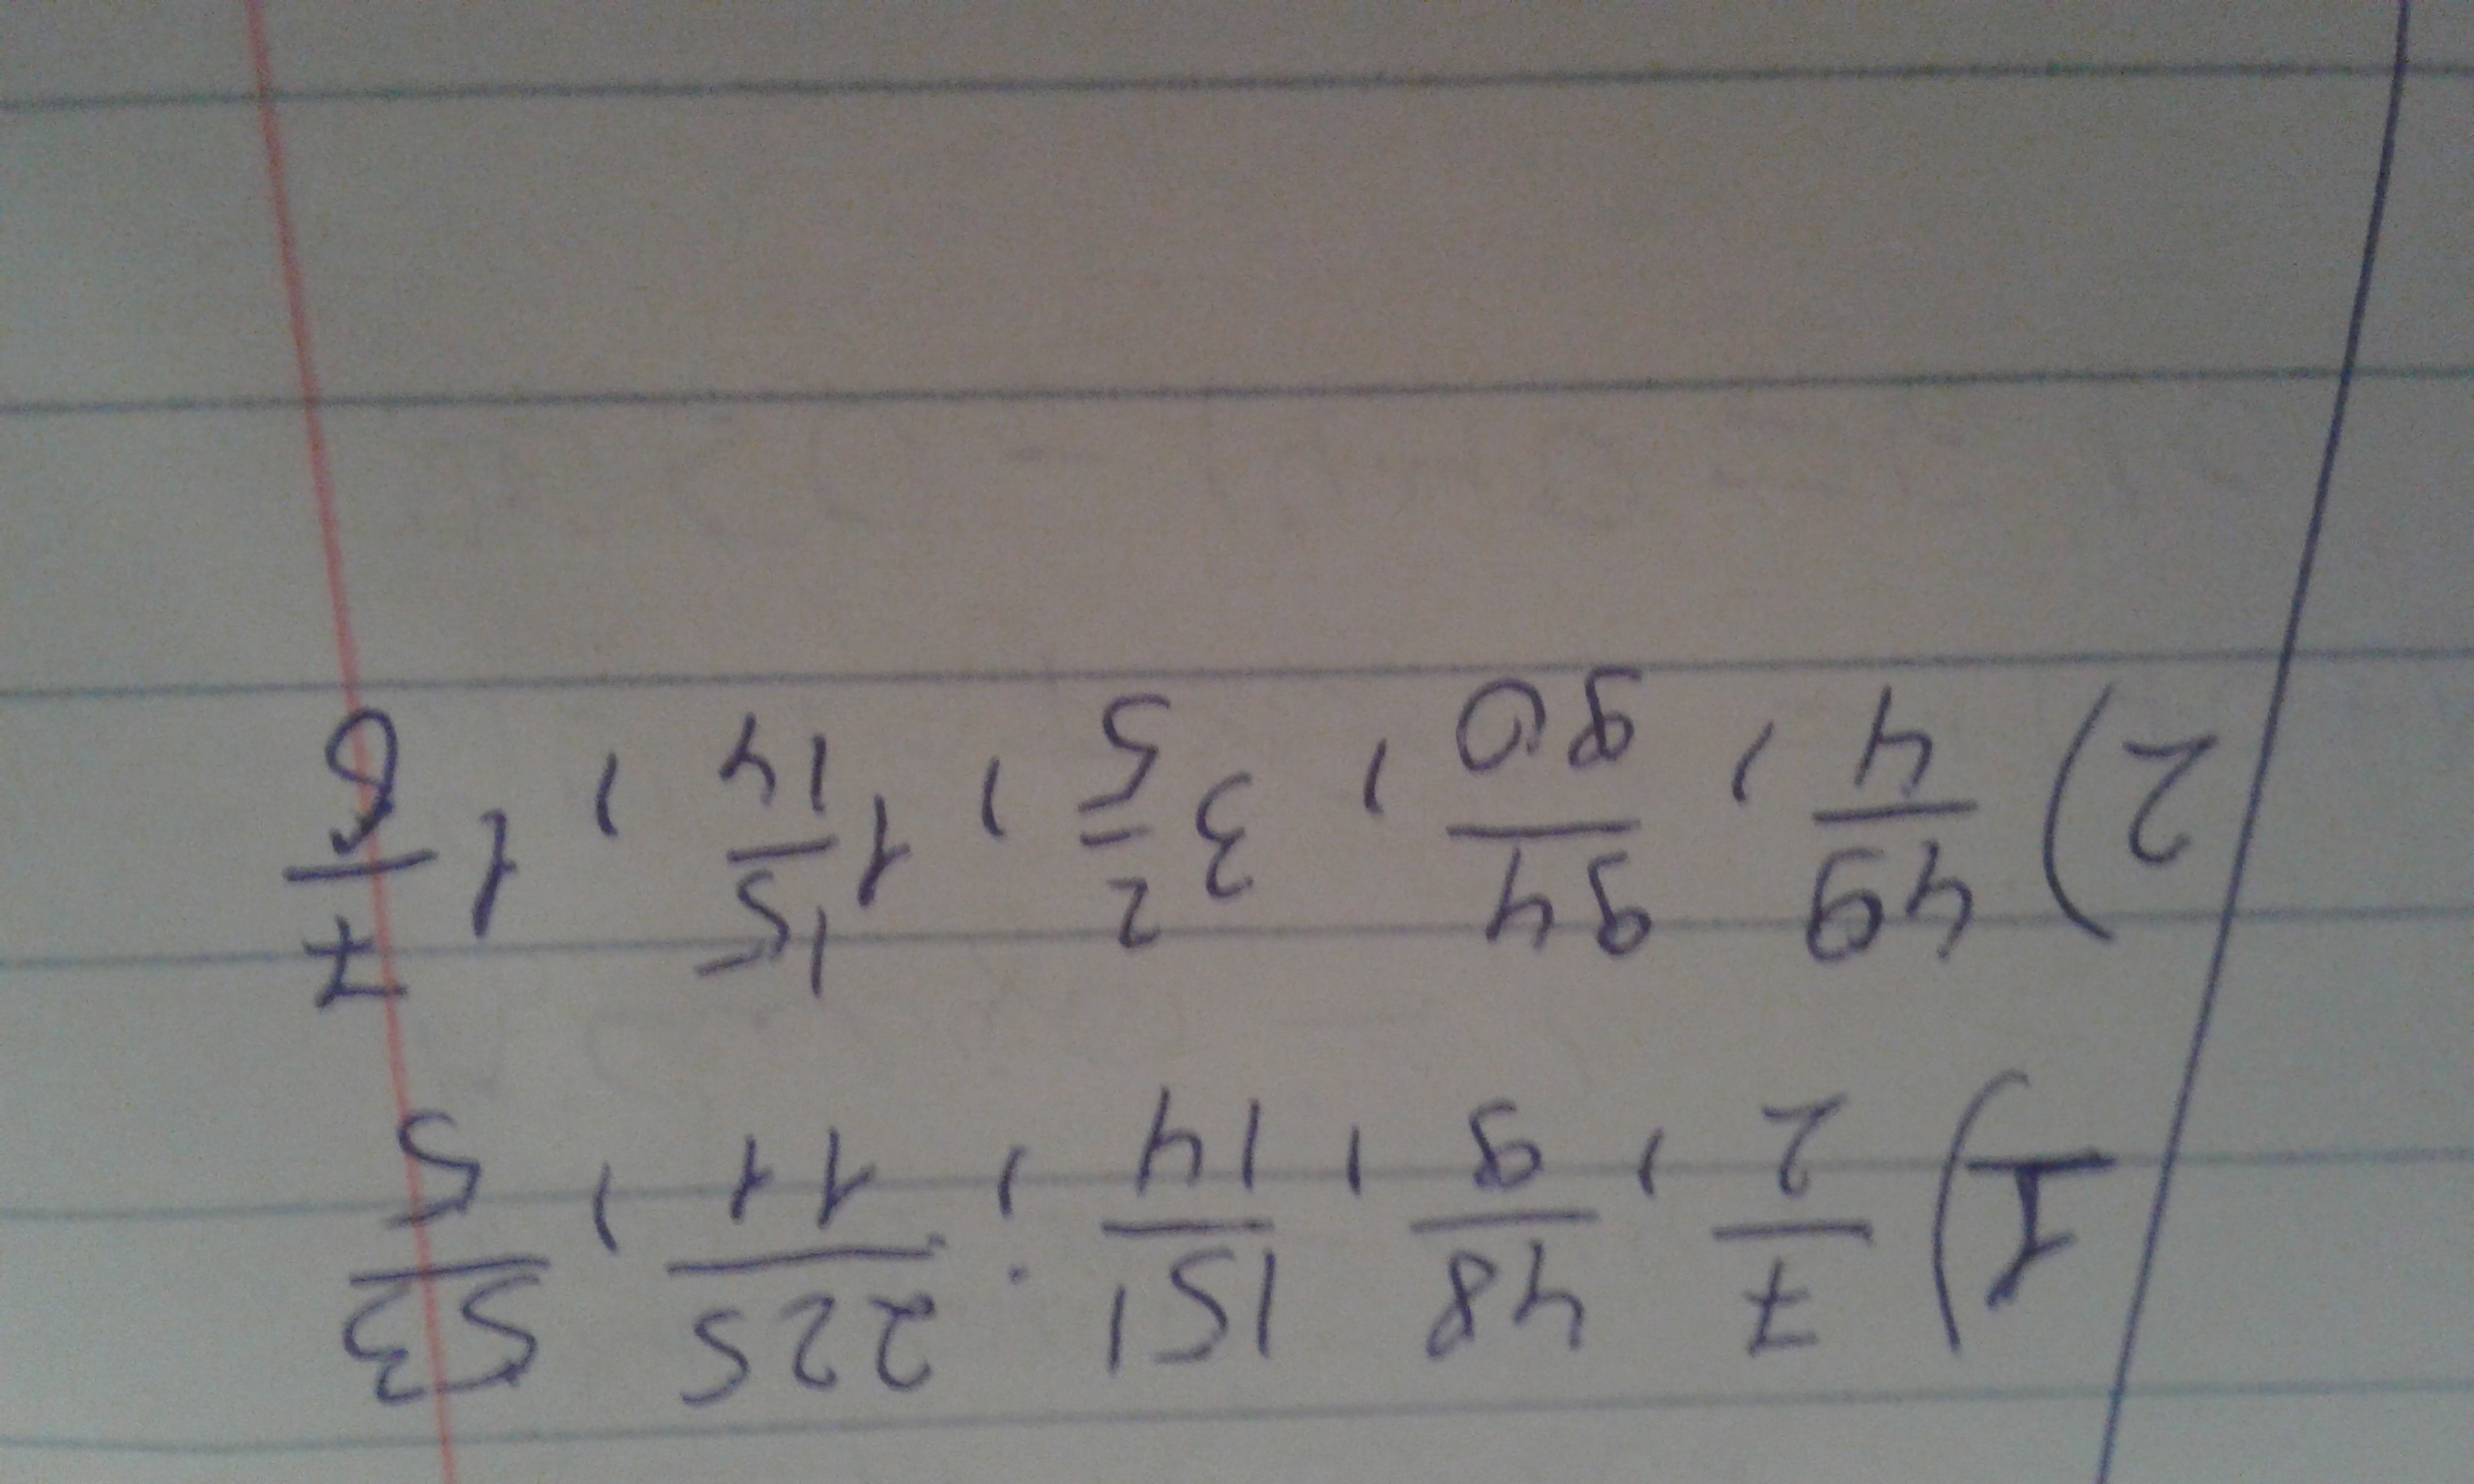 1) 7/2, 48/9, 151/14, 225/11, 53/5
2) 49/4, 94/90, 3 2/5, 1 15/14, 1 7/6